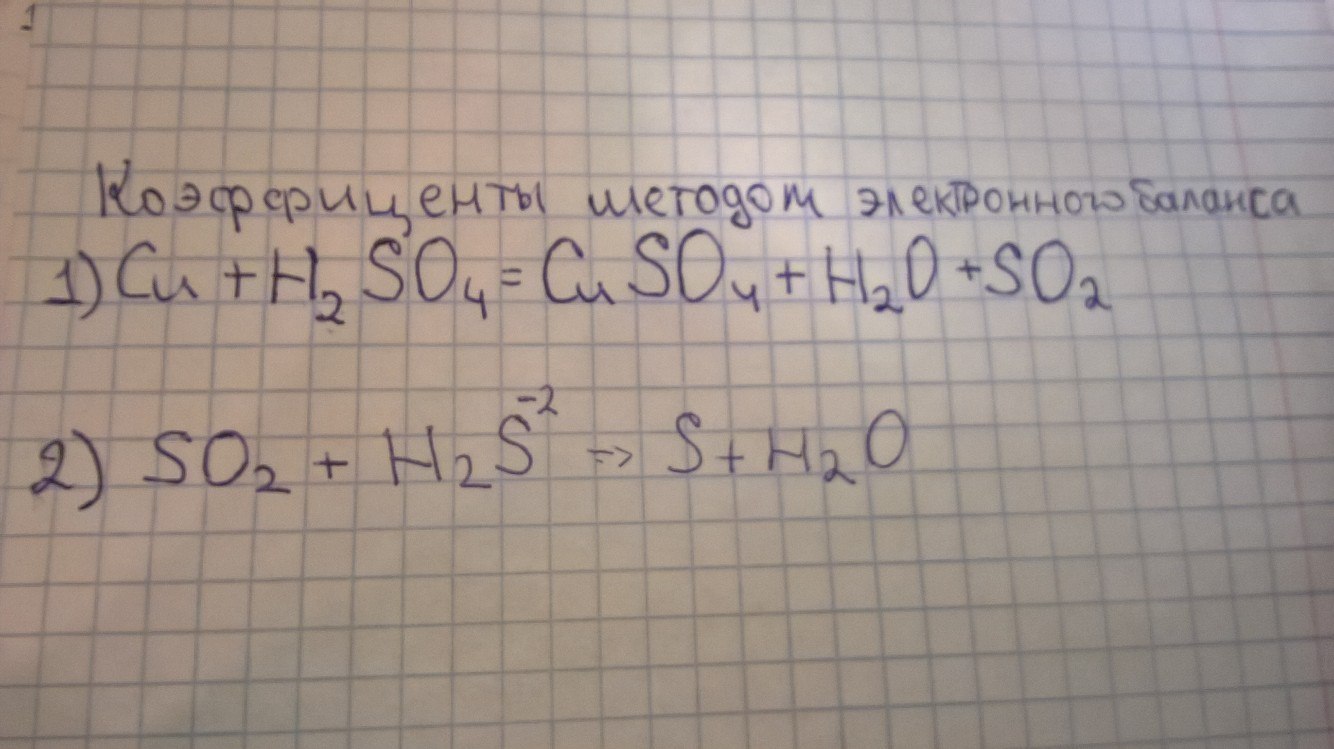 Коэффициенты методом электронного баланса
1) Cu + H₂SO₄ = CuSO₄ + H₂O + SO₂
2) SO₂ + H₂S⁻² => S + H₂O